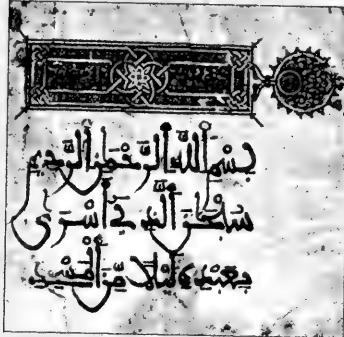 بِسْمِ ٱللَّهِ ٱلرَّحْمَٰنِ ٱلرَّحِيمِ
سُبْحَٰنَ ٱلَّذِى أَسْرَىٰ
بِعَبْدِهِ لَيْلًا مِّنَ ٱلْمَسْجِدِ